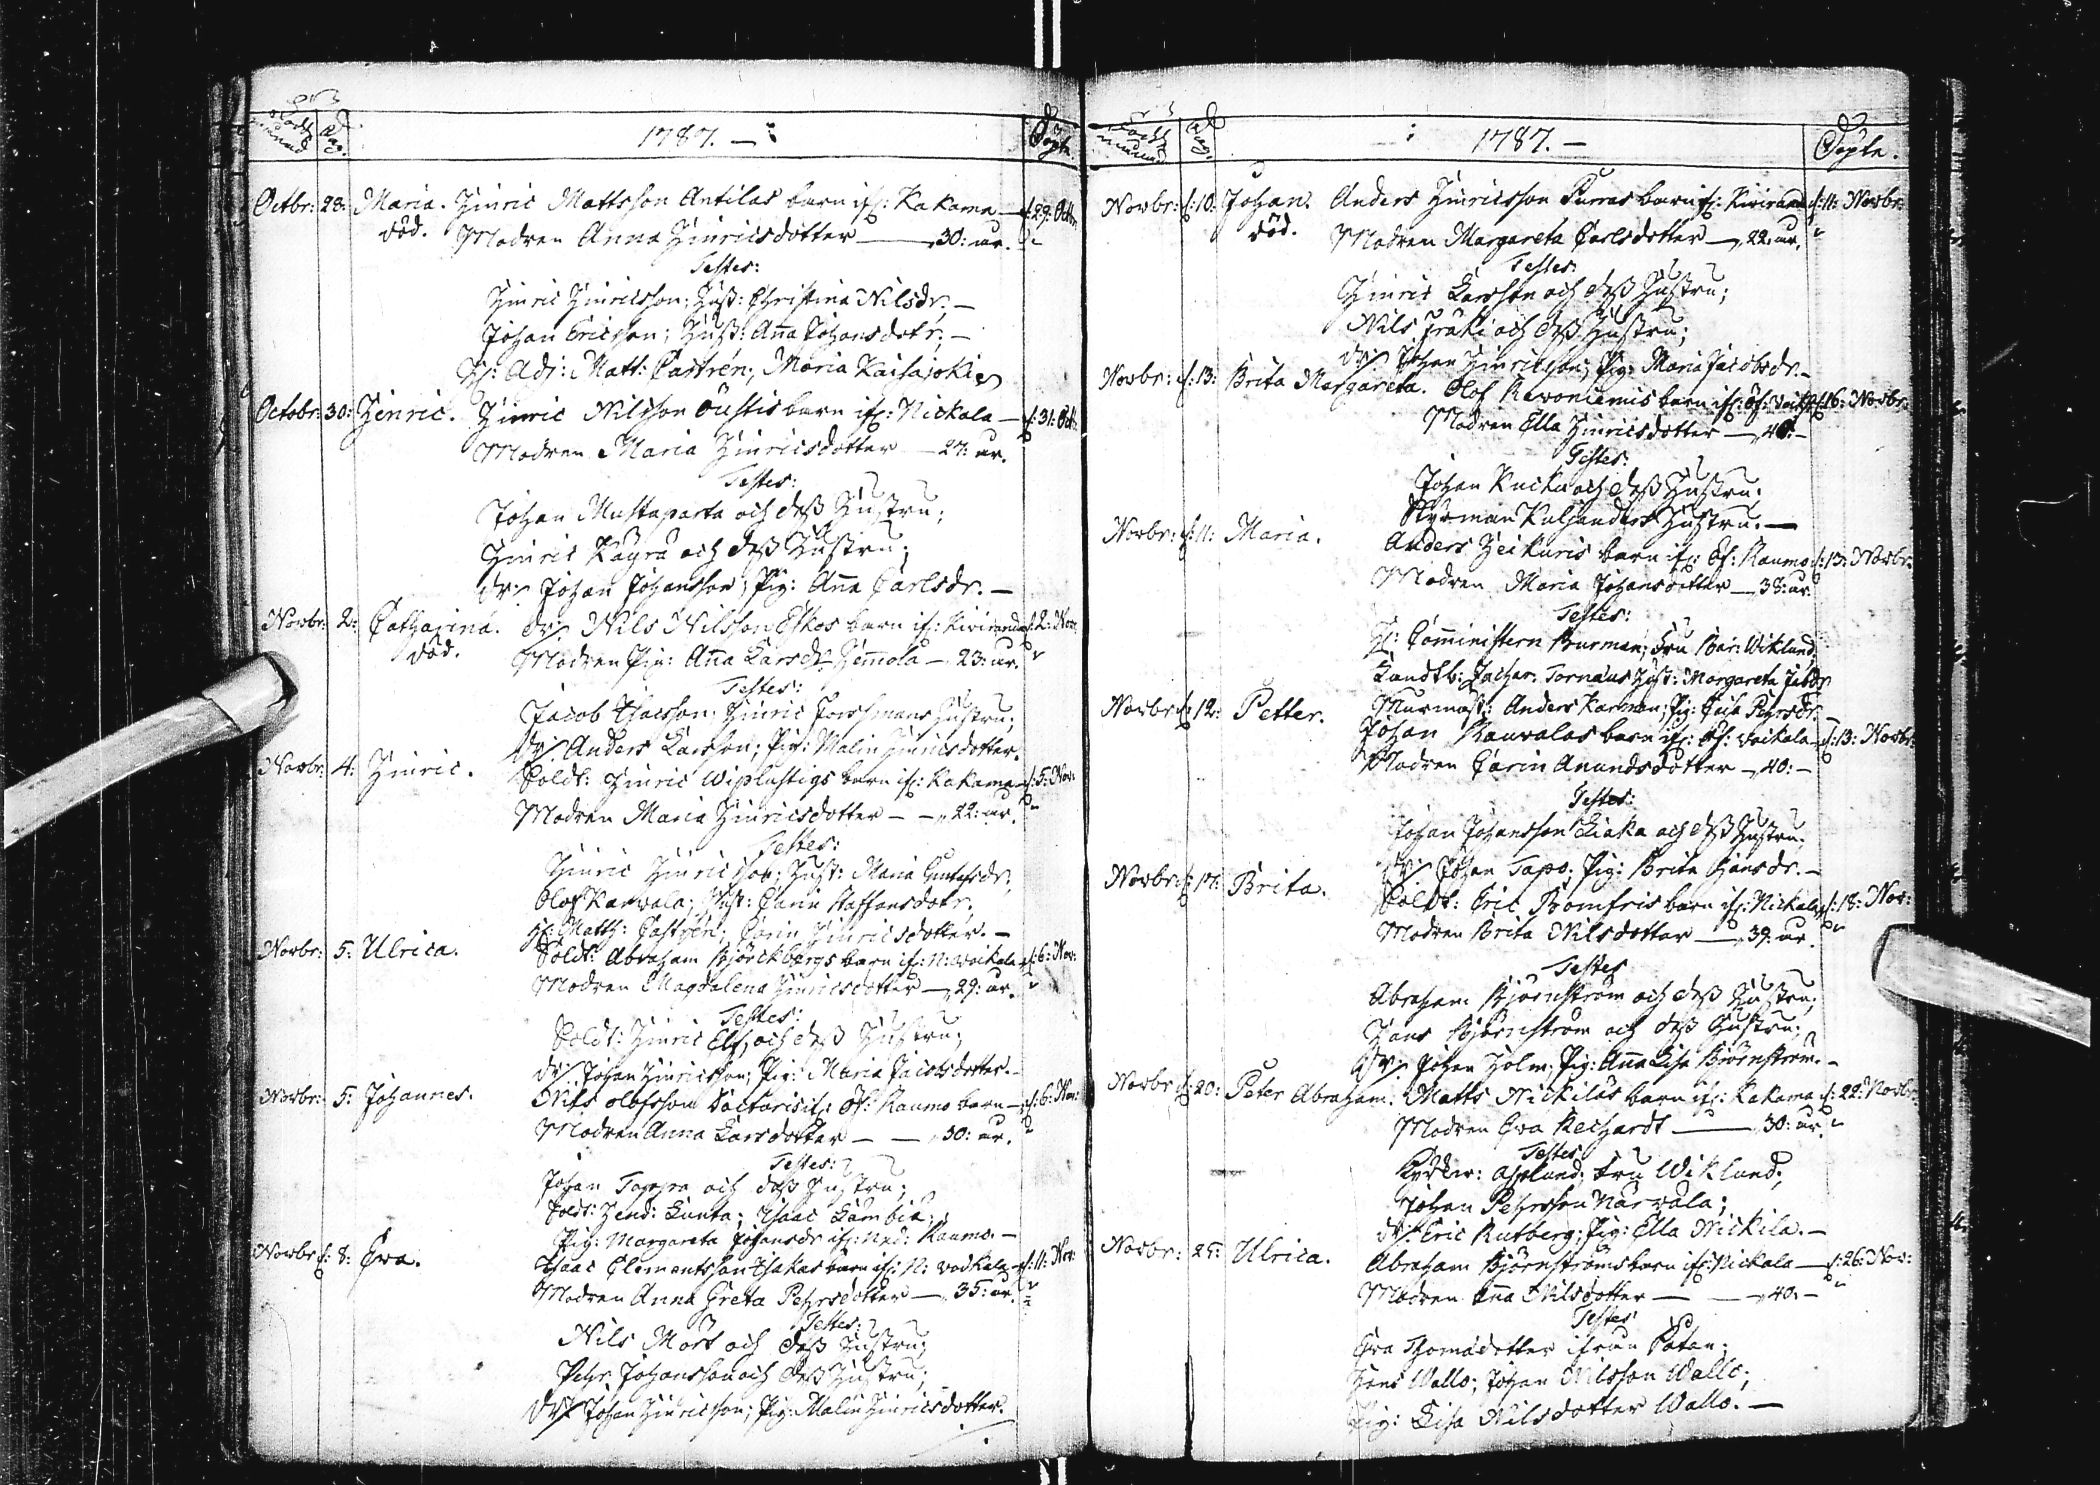 1787. —
Döpte.
Octbr: 28: Maria. Hinric Mattsson Antilas barn ifr: Kakama — d: 29: Octbr:
död. Modren Anna Hinricsdotter — 30: år.
Testes:
Hinric Hinricsson; Hust: Christina Nilsdr; —
Johan Ericsson; Hust: Aña Johansdotr; —
Adj: Matt: Castrén; Maria Kaisajoki
Octobr: 30: Henric. Hinric Nilsson barn ifr: Nickala — d: 31: Octr:
Modren Maria Hinricsdotter — 27: år.
Testes:
Johan Mustaparta och deß Hustru;
Hinric Käyrä och deß Hustru;
dr: Johan Johansson; Pig: Aña Carlsdr. —
Novbr: 2: Catharina. dr: Nils Nilsson Eskos barn ifr: Kiviranda d: 2: Nov:
död. Modren Pig: Aña Larsdr — 23: år.
Testes:
Jacob Isacsson; Hinric Hustru;
dr: Anders Larsson; Pig: Malin Hinricsdotter.
Novbr: 4: Hinric. Soldt: Hinric barn ifr: Kakama d: 5: Nov:
Modren Maria Hinricsdotter — 22: år.
Testes:
Hinric Hinricsson; Hust: Maria
Olof Karvala; Hust: Carin Staffansdotr;
Hr: Matth: Castrén; Carin Hinricsdotter. —
Novbr: 5: Ulrica. Soldt: Abraham Björckbergs barn ifr: N: Voikala d: 6: Nov:
Modren Magdalena Hinricsdotter — 29: år.
Testes:
Soldt: Hinric Elf, och deß Hustru;
dr: Johan Hinricsson; Pig: Maria Jacobsdotter. —
Novbr: 5: Johannes. Nils Olofsson ifr: Öf: Raumo barn — d: 6: Nov:
Modren Anna Larsdotter — 30: år.
Testes:
Johan och deß Hustru;
Soldt: Hend: Lunta; Isaac
Pig: Margareta Johansdr ifr: Ned: Raumo. —
Novbr: d: 8: Eva. Isaac Clementsson Isakas barn ifr: N: Voikala d: 11: Nov:
Modren Anna Greta Pehrsdotter — 35: år.
Testes:
Nils Mört och deß Hustru;
Pehr Johansson och deß Hustru;
dr: Johan Hinricsson; Pig: Malin Hinricsdotter.
1787. —
Döpte.
Novbr: d: 10: Johan. Anders Hinricsson Purras barn ifr: Kiviranda d: 11: Novbr:
död. Modren Margareta Carlsdotter — 22: år.
Testes:
Hinric Larsson och deß Hustru;
Nils Fräki och deß Hustru;
dr: Johan Hinricsson; Pig: Maria Jacobsdr. —
Novbr: d: 13: Brita Margareta. Olof Kavoniemis barn ifr: Öf: Voikala d: 16: Novbr:
Modren Ella Hinricsdotter — 40: —
Testes:
Johan Kucku och deß Hustru;
Hustru. —
Novbr: d: 11: Maria. Anders Heikuris barn ifr: Öf: Raumo d: 13: Novbr:
Modren Maria Johansdotter — 38: år
Testes:
Hr: Comministern Burman; Fru Bar: Wiklund;
Zachar: Tornæus Hust: Margareta
Anders Karman; Pig: Pehrsdr:
Novbr: d: 12: Petter. Johan Kauvalas barn ifr: Öf: Voikala — d: 13: Novbr:
Modren Carin Anundsdotter — 40: —
Testes:
Johan Johansson Liaka och deß Hustru.
dr: Johan Tapo; Pig: Brita Hansdr. —
Novbr: d: 17: Brita. Soldt: Eric Bomfris barn ifr: Nickala d: 18: Nov:
Modren Brita Nilsdotter — 39: år.
Testes
Abraham Björnström och deß Hustru;
Hans Björnström och deß Hustru;
dr: Johan Holm; Pig: Aña Lisa Björnström. —
Novbr: d: 20: Peter Abraham. Matts Nickilas barn ifr: Kakama d: 22: Novbr:
Modren Eva Rechardt — 30: år.
Testes
Asplund; Fru Wiklund;
Johan Pehrsson Narvala;
dr: Eric Rutberg; Pig: Ella Nickila. —
Novbr: 25: Ulrica. Abraham Björnströms barn ifr: Nickala — d: 26: Nov:
Modren Aña Nilsdotter — 40: —
Testes
Eva Thomadotter ifrån
Hans Wallo; Johan Nilsson Wallo;
Pig: Lisa Nilsdotter Wallo. —